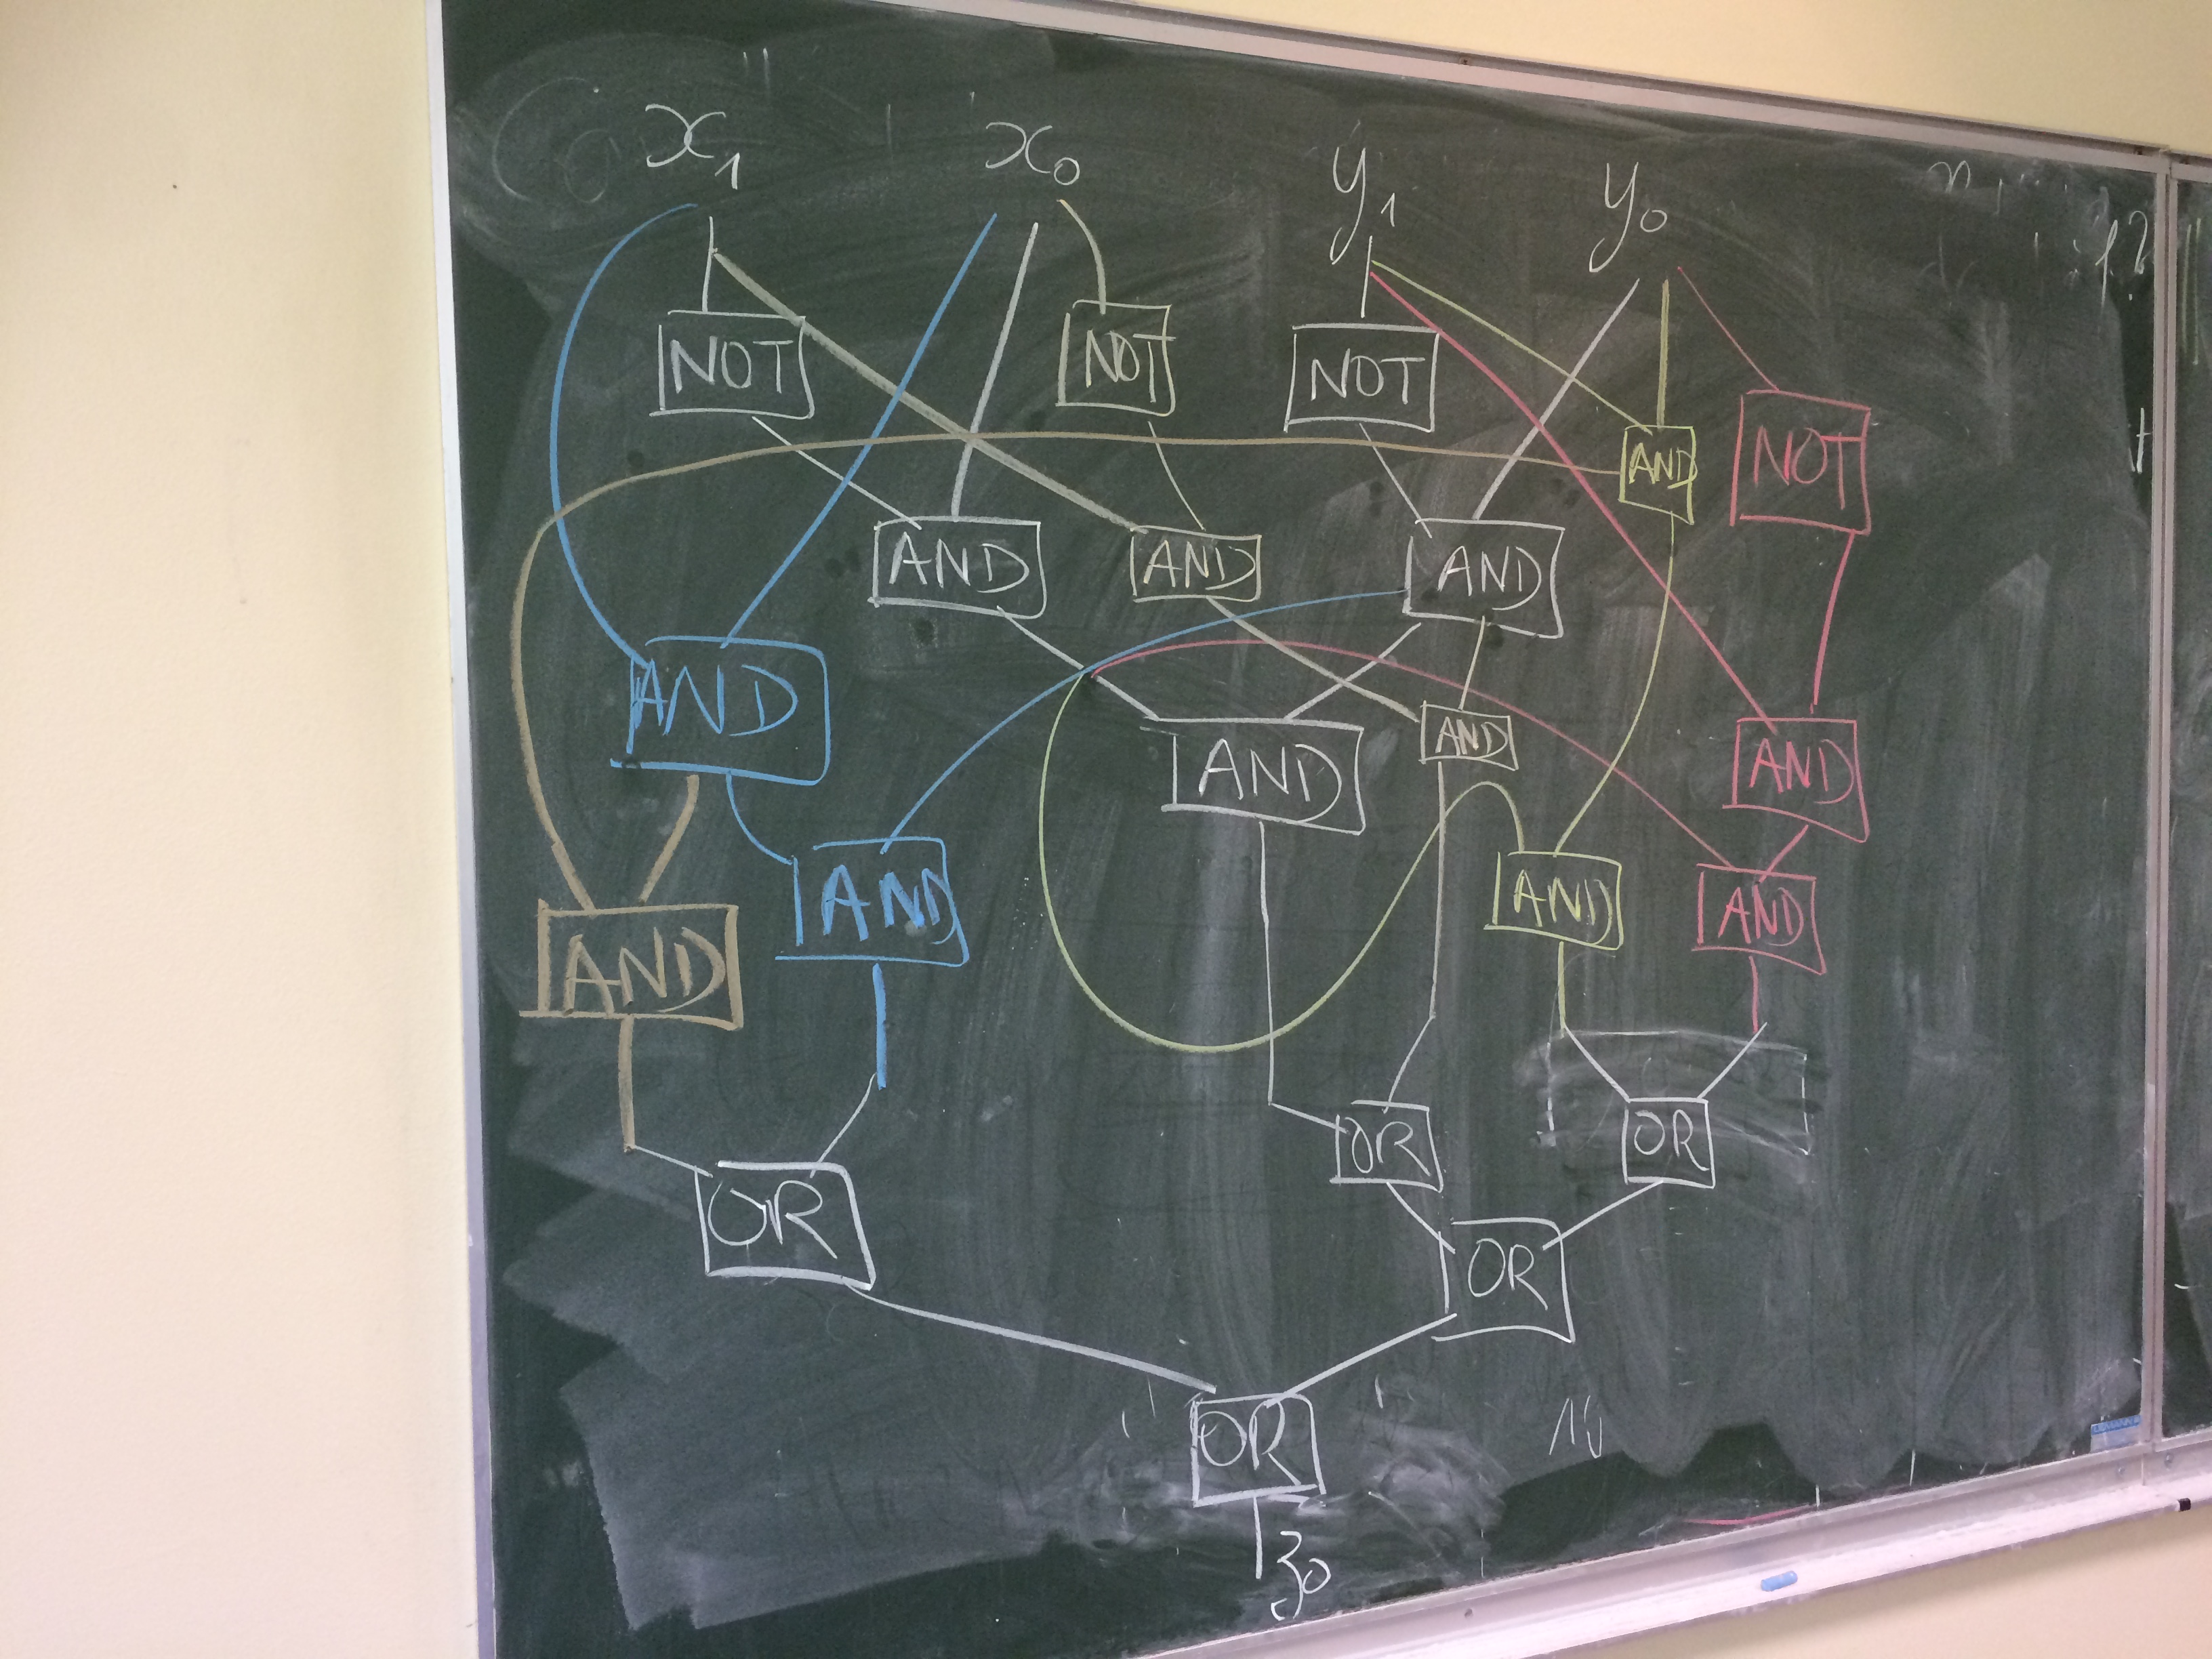 x₁ x₀ y₁ y₀
NOT NOT NOT NOT
AND
AND AND AND
AND AND AND AND
AND AND AND
AND
OR OR
OR OR
OR
z₀